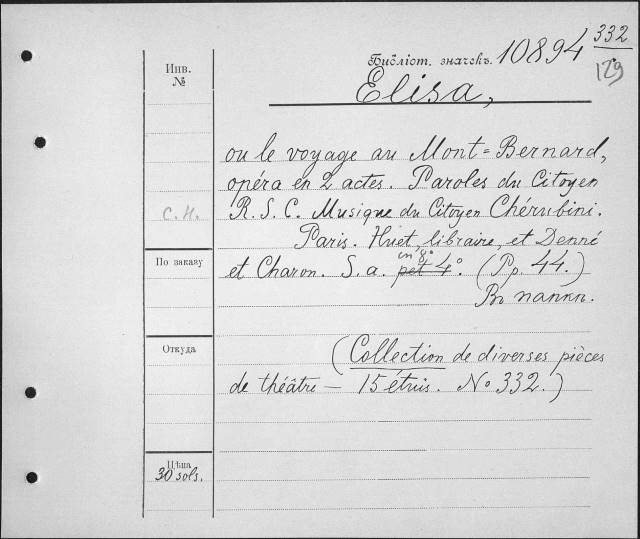 332
Библіот. значекъ. 10894
129
Инв.
№
Elisa,
ou le voyage au Mont=Bernard,
opéra en 2 actes. Paroles du Citoyen
R. S. C. Musique du Citoyen Chérubini.
С. Н.
Paris. Huet, libraire, et Denné
in 8°
et Charon. S. a. pet 4°. (Pp. 44.)
По заказу
Въ папкѣ.
Откуда
(Collection de diverses pièces
de théâtre — 15 étuis. No 332.)
Цѣна
30 sols.